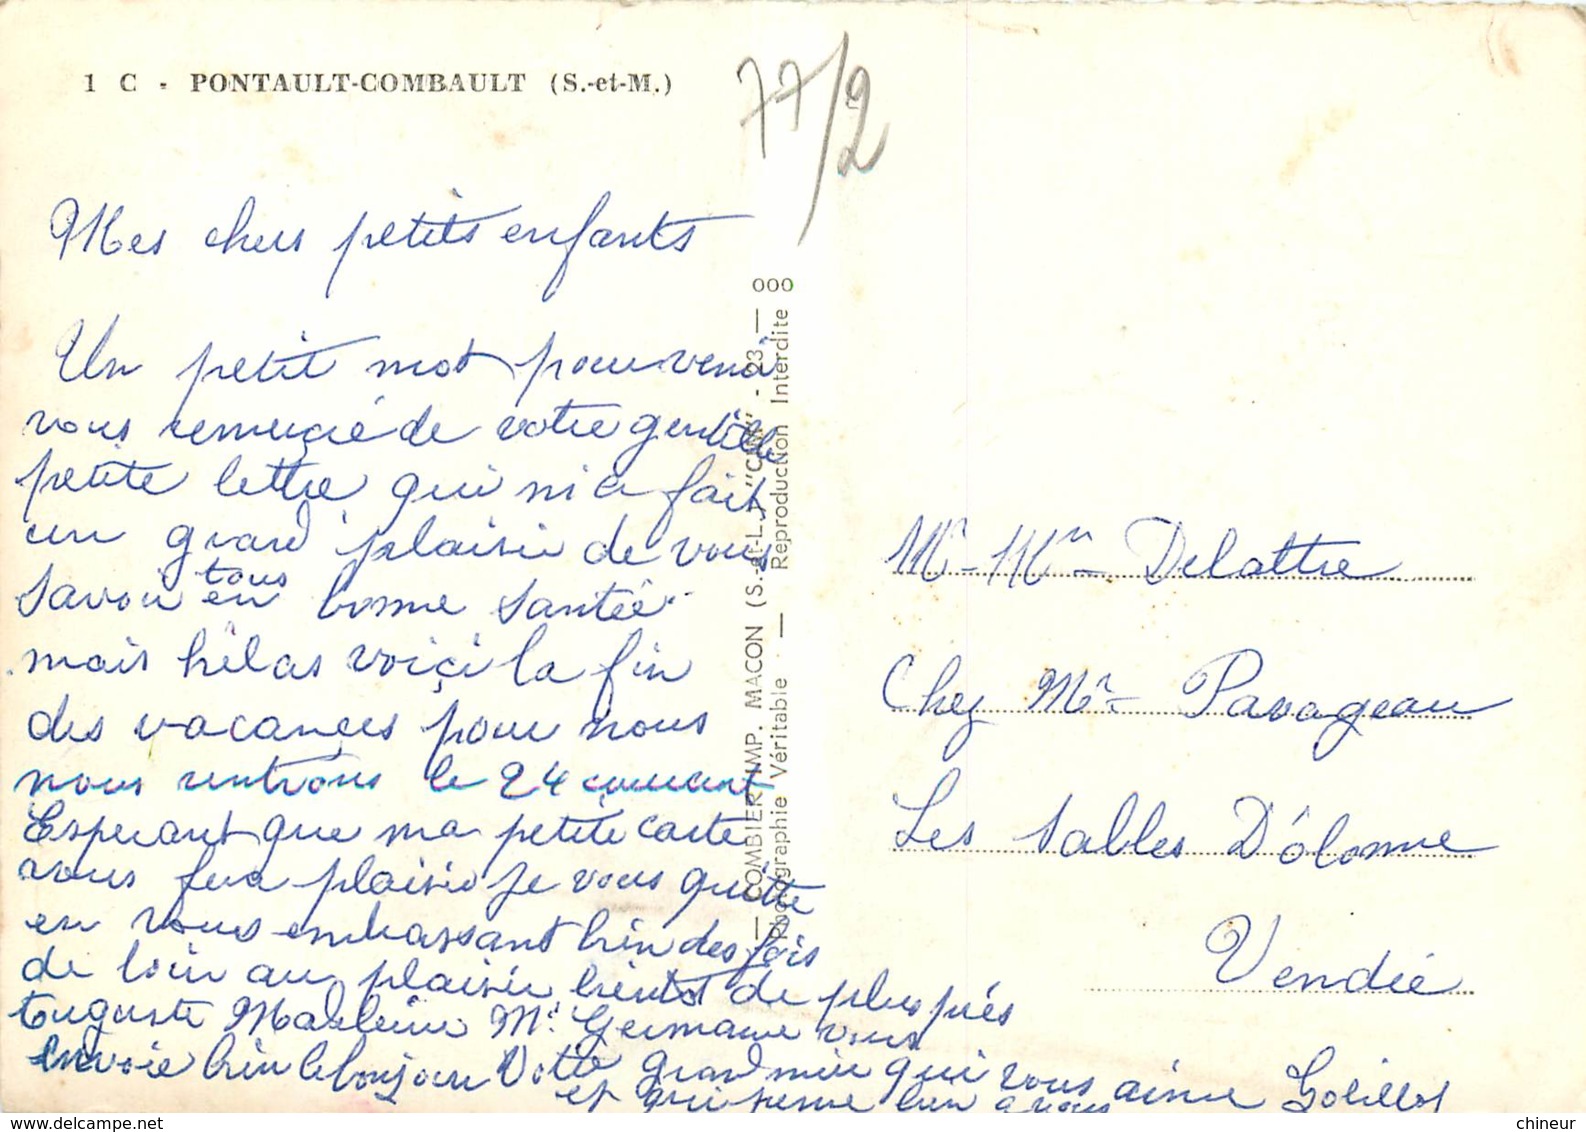 1 C - PONTAULT-COMBAULT (S.-et-M.)
77/2
Mes chers petits enfants
Un petit mot pour venir
vous remercié de votre gentille
petite lettre qui m'a fait
un grand plaisir de vous
savoir tous en bonne santée
mais hélas voiçi la fin
des vacançes pour nous
nous rentrons le 24 courant
Esperant que ma petite carte
vous fera plaisir je vous quitte
en vous embrassant bien des fois
de loin au plaisir bientot de plus près
Auguste Madleine Mr Germaine vous
envoie bien le bonjour Votre grand mère qui vous aime
et qui pense bien a vous
— COMBIER IMP. MACON (S.-et-L.) "CIM" - 23 — 000
Photographie Véritable — Reproduction Interdite
Mr - Mme Delattre
Chez Mr Pavageau
Les Salles D'olonne
Vendée
chineur